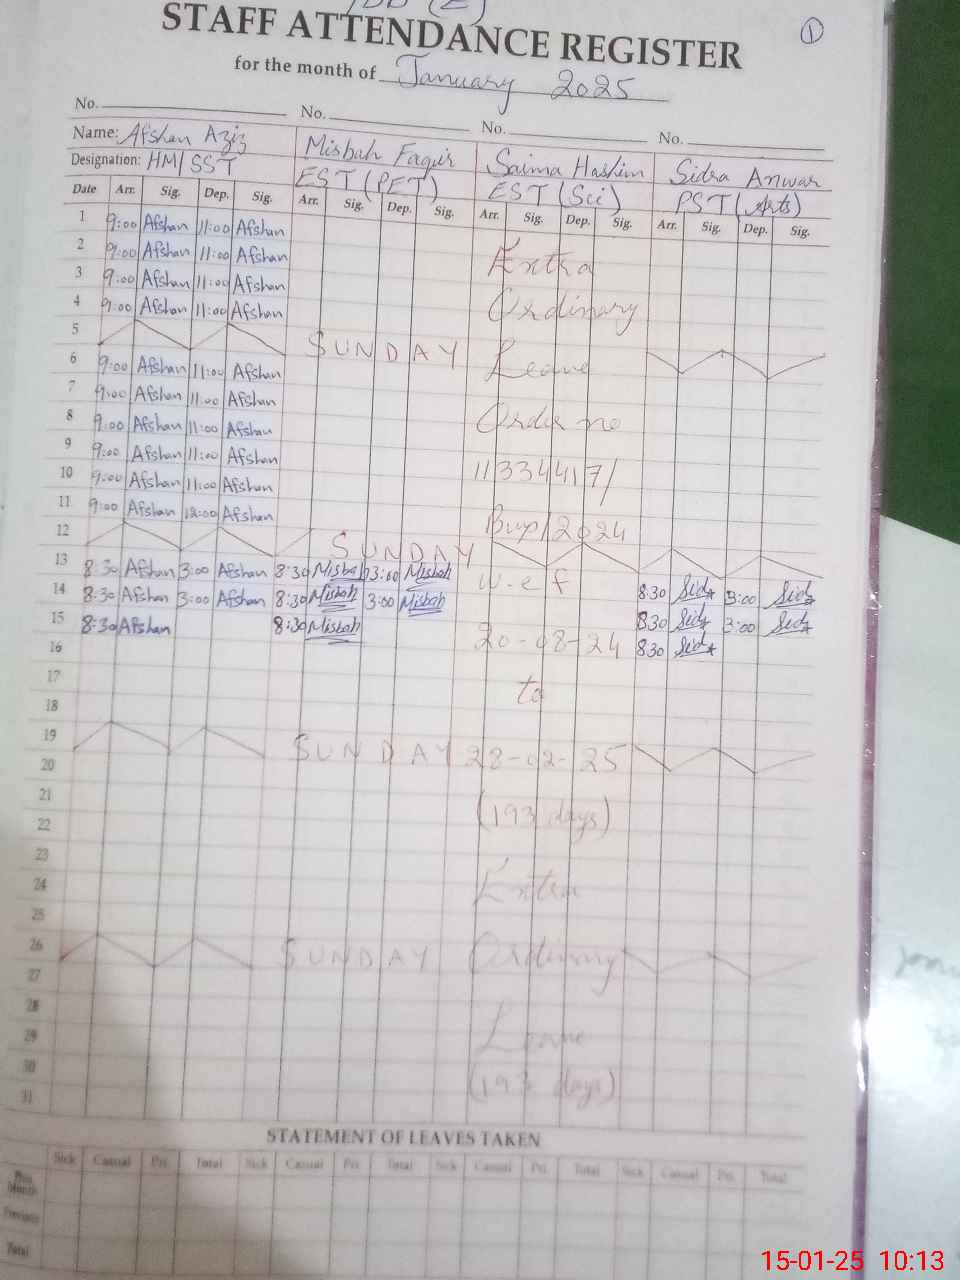 STAFF ATTENDANCE REGISTER
①
for the month of January 2025
No. No. No. No.
Name: Afshan Aziz Misbah Faqir Saima Hashim Sidra Anwar
Designation: HM/SST EST (PET) EST (Sci) PST (Arts)
Date Arr. Sig. Dep. Sig. Arr. Sig. Dep. Sig. Arr. Sig. Dep. Sig. Arr. Sig. Dep. Sig.
1 9:00 Afshan 11:00 Afshan
2 9:00 Afshan 11:00 Afshan Extra
3 9:00 Afshan 11:00 Afshan
4 9:00 Afshan 11:00 Afshan Ordinary
5 SUNDAY
6 9:00 Afshan 11:00 Afshan Leave
7 9:00 Afshan 11:00 Afshan
8 9:00 Afshan 11:00 Afshan Order no
9 9:00 Afshan 11:00 Afshan
10 9:00 Afshan 11:00 Afshan 11334417/
11 9:00 Afshan 12:00 Afshan
12 SUNDAY /2024
13 8:30 Afshan 3:00 Afshan 8:30 Misbah 3:00 Misbah
14 8:30 Afshan 3:00 Afshan 8:30 Misbah 3:00 Misbah w-e-f 8:30 Sidra 3:00 Sidra
15 8:30 Afshan 8:30 Misbah 8:30 Sidra 3:00 Sidra
16 20-08-24 8:30 Sidra
17
18 to
19 SUNDAY
20 28-02-25
21
22 (193 days)
23
24 Extra
25
26 SUNDAY Ordinary
27
28
29 Leave
30
31 (193 days)
STATEMENT OF LEAVES TAKEN
Sick Casual Pri. Total Sick Casual Pri. Total Sick Casual Pri. Total Sick Casual Pri. Total
Month
Previous
Total
15-01-25 10:13